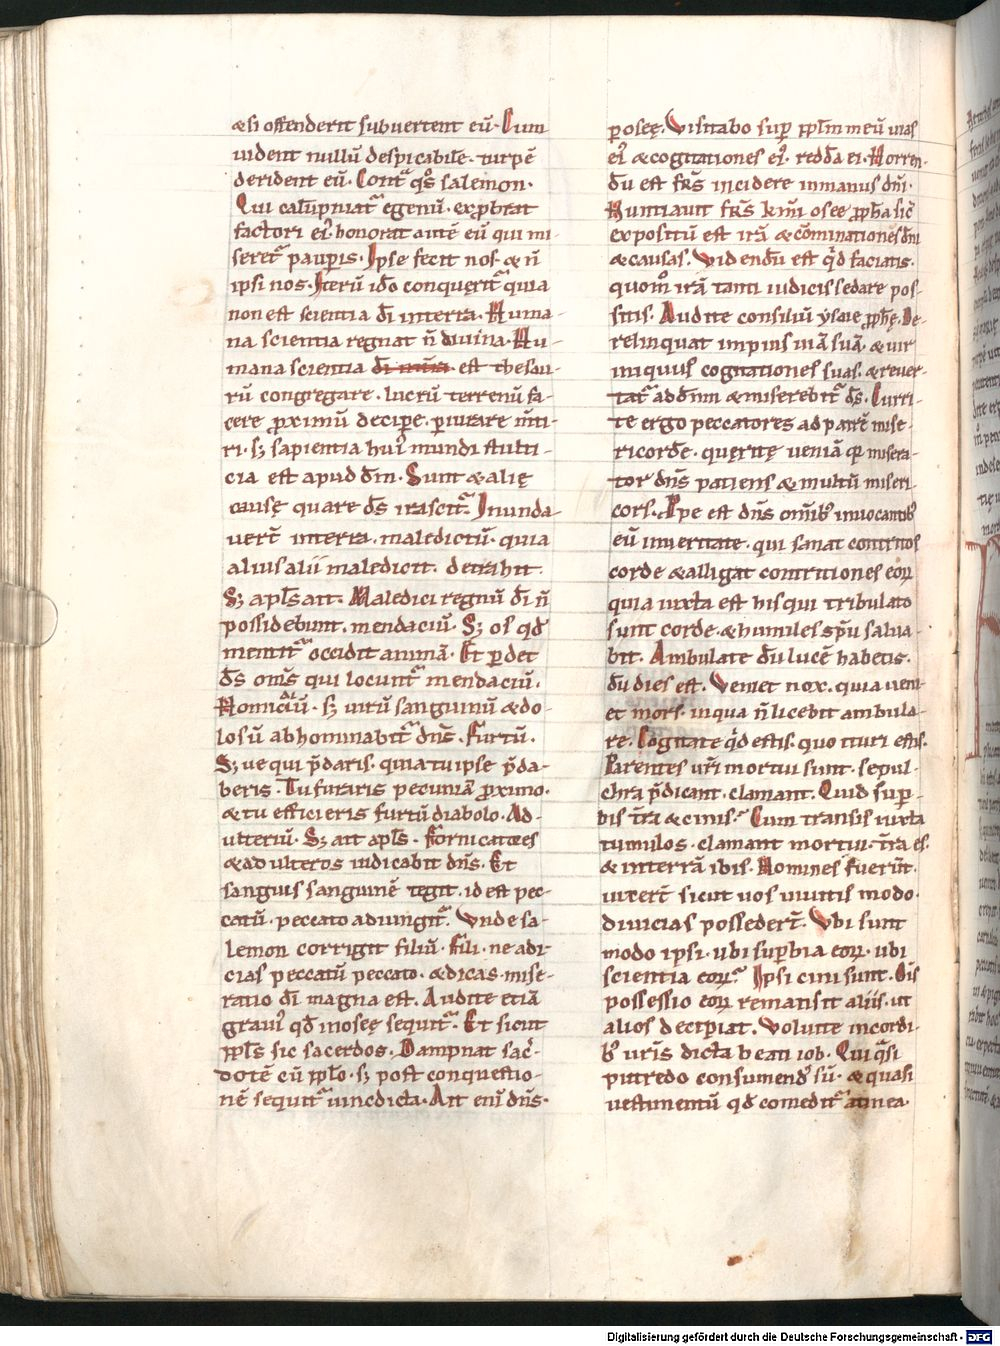 & si offenderit subuertent eū. Cum
uident nullū despicabilē. turpē
derident eū. Contͣ qͦs salemon.
Qui calūpniatͣ egenū. exp̱brat
factori eiꝰ. honorat autē eū qui mi-
seretͣ paup̱is. Ipse fecit nos. & n̄
ipsi nos. Iterū ido conqueritͣ quia
non est scientia dī in terra. Huma-
na scientia regnat n̄ diuina. Hu-
mana scientia est thesau-
rū congregare. lucrū terrenū fa-
cere ꝓximū decipe. piurare m̄ti-
ri. sꝫ sapientia huiꝰ mundi stulti-
cia est apud dm̄. Sunt & alię
causę quare ds̄ irascitͣ. Inunda-
uert̄ in terra. maledictū. quia
alius alii maledicit. detrahit.
Sꝫ apls̄ ait. Maledici regnū dī n̄
possidebunt. mendaciū. Sꝫ os qd̄
mentitͣ occidit animā. Et ꝑdet
ds̄ oms̄ qui locuntͣ mendaciū.
Homicidiū. sꝫ uirū sanguinū & do-
losū abhominabitͣ dn̄s. Furtū.
Sꝫ ue qui p̄daris. quia tu ipse p̄da-
beris. Tu furaris pecuniā ꝓximo.
& tu efficieris furtū diabolo. Ad-
ulteriū. Sꝫ ait apls̄. Fornicatores
& adulteros iudicabit dn̄s. Et
sanguis sanguinē tegit. id est pec-
catū. peccato adiungitͣ. Vnde sa-
lemon corrigit filiū. Fili. ne adi-
cias peccatū peccato. & dicas. mise-
ratio dī magna est. Audite etiā
grauiꝰ qd̄ in oseę sequitͣ. Et sicut
ppl̄s sic sacerdos. Dampnat sac̄-
dotē cū ppl̄o. sꝫ post conquestio-
nē sequitͣ uindicta. Ait eni dn̄s.
ꝑ oseę. Visitabo suꝑ ppl̄m meū uias
eiꝰ & cogitationes eiꝰ. reddā ei. Horren-
dū est frs̄ incidere in manus dn̄i.
Nuntiauit frs̄ km̄i osee ꝓph̄a sic̄
expositū est irā & cōminationes dn̄i
& causas. Videndū est qͥd faciatis.
quom̄ irā tanti iudicis sedare pos-
sitis. Audite consiliū ysaie ꝓph̄ę. De-
relinquat impius uiā suā. & uir
iniquus cogitationes suas. & reuer-
tatͣ ad dnm̄ & miserebitͣ ds̄. Curri-
te ergo peccatores ad patrē mise-
ricordē. queritę ueniā qͣ misera-
tor dn̄s patiens & multū miseri-
cors. Ipe est dn̄s om̄ibꝰ inuocantibꝰ
eū in ueritate. qui sanat contritos
corde & alligat contritiones eoꝝ
quia iuxta est his qui tribulato
sunt corde. & humiles spū salua-
bit. Ambulate dū lucē habetis.
dū dies est. Veniet nox. quia ueni-
et mors. in qua n̄ licebit ambula-
re. Cogitate qͥd estis. quo ituri estis.
Parentes uri mortui sunt. sepul-
chra p̄dicant. clamant. Quid suꝑ-
bis tr̄a & cinis? Cum transis iuxta
tumulos. clamant mortui. tr̄a es.
& in terrā ibis. Homines fuerūt.
uixert̄ sicut uos uiuitis modo.
diuicias possedert̄. Vbi sunt
modo ipsi. ubi suꝑbia eoꝝ. ubi
scientia eoꝝ? Ipsi cini sunt. Ōis
possessio eoꝝ remansit aliis. ut
alios decipiat. Voluite in cordi-
bꝰ uris̄ dicta beati iob. Qui qͣsi
putredo consumendꝰ sū. & quasi
uestimentū qd̄ comeditͣ a tinea.
Digitalisierung gefördert durch die Deutsche Forschungsgemeinschaft - DFG